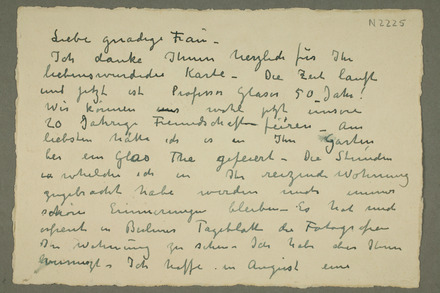 N2225
Liebe gnädige Frau –
Ich danke Ihnen herzlich für Ihr
liebenswürdige Karte – Die Zeit lauft
und jetzt ist Professor Glaser 50 Jahr!
Wir können uns wohl jetzt unsere
20 Jahrige Freundschaft feiren – Am
liebsten hätte ich es in Ihr Garten
bei ein Glas Thee gefeiert – Die Stunden
welche ich in Ihr reizende Wohnung
zugebracht habe werden mir immer
schöne Erinnerungen bleiben – Es hat mich
erfreut in Berliner Tageblatt die Fotografien
Ihr Wohnung zu sehen. Ich habe Ihnen
Ich hoffe in August eine